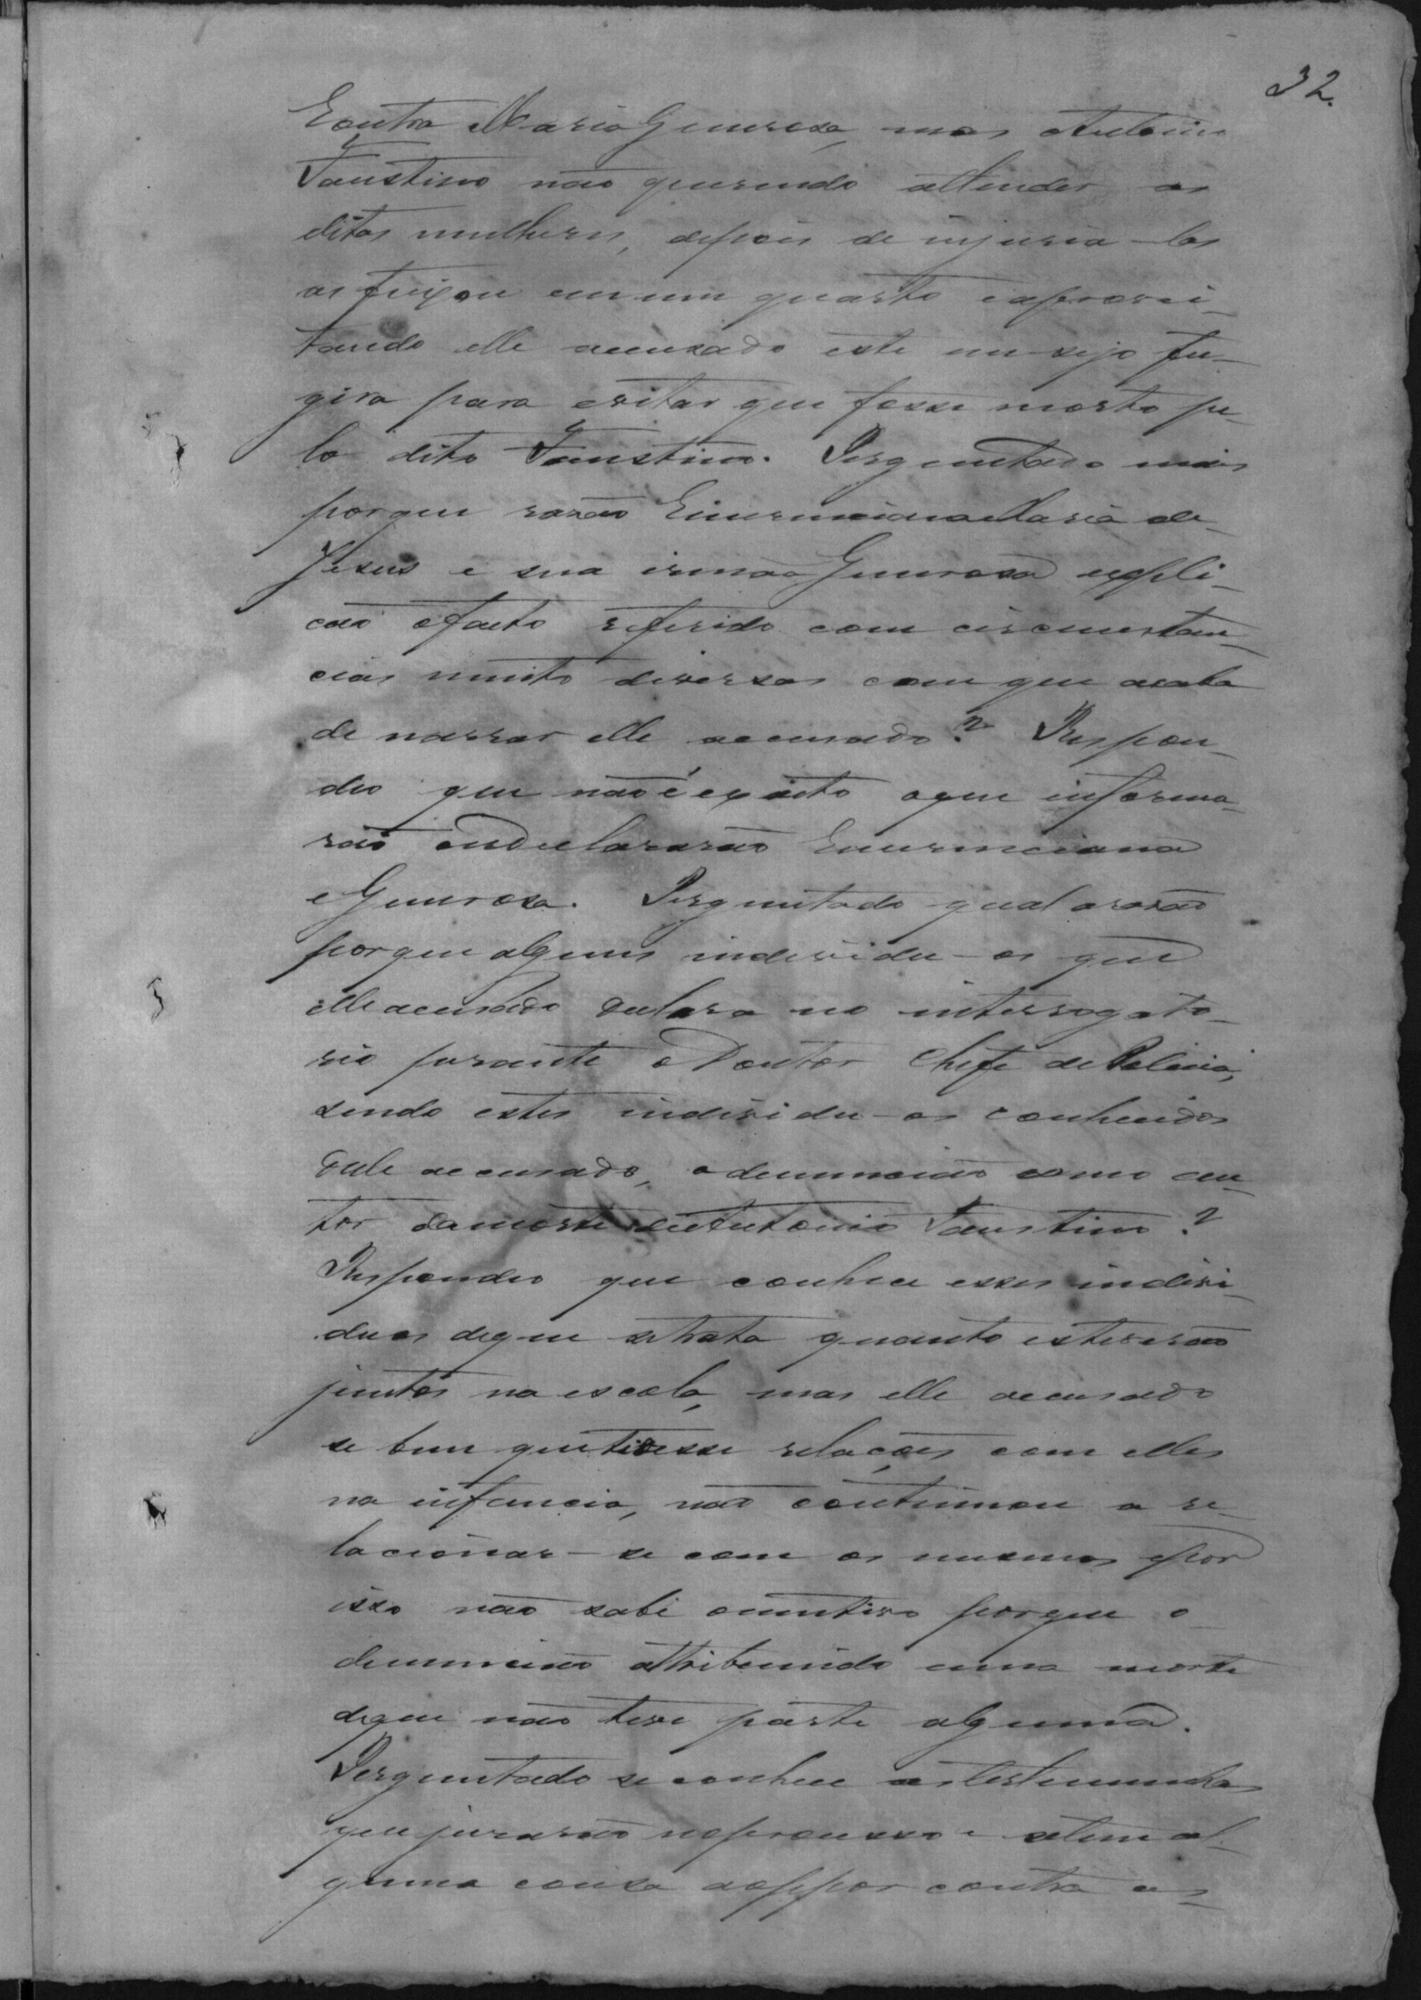 32.
Contra Maria Generosa, mas Antonio
Faustino não querendo attender as
ditas mulheres, depois de injuria-las
as feixou em um quarto e aprovei-
tando elle accusado este ensejo fu-
gira para evitar que fosse morto pe-
lo dito Faustino. Perguntado mais
porque rasão Emerenciana Maria de
Jesus e sua irmão Generosa expli-
cão o facto referido com circumstan-
cias muito diversas com que acaba
de narrar elle accusado? Respon-
deo que não é exacto o que informa-
rão ou declararão Emerenciana
e Generosa. Perguntado qual a rasão
porque alguns individu-os que
elle accusado declara no interrogato-
rio perante o Doutor Chefe de Policia,
sendo estes individu-os conhecidos
delle accusado, o denuncião como au-
tor da morte de Antonio Faustino?
Respondeo que conhece esses indivi-
duos de que se trata quanto estiverão
juntos na escola, mas elle accusado
se bem que tivesse relações com elles
na infancia, não continuou a re-
lacionar-se com os mesmos e por
isso não sabe o motivo porque o
denuncião attribuindo uma morte
de que não teve parte alguma.
Perguntado se conhece as testemunhas
que jurarão no processo e se tem al-
guma couza a oppor contra as